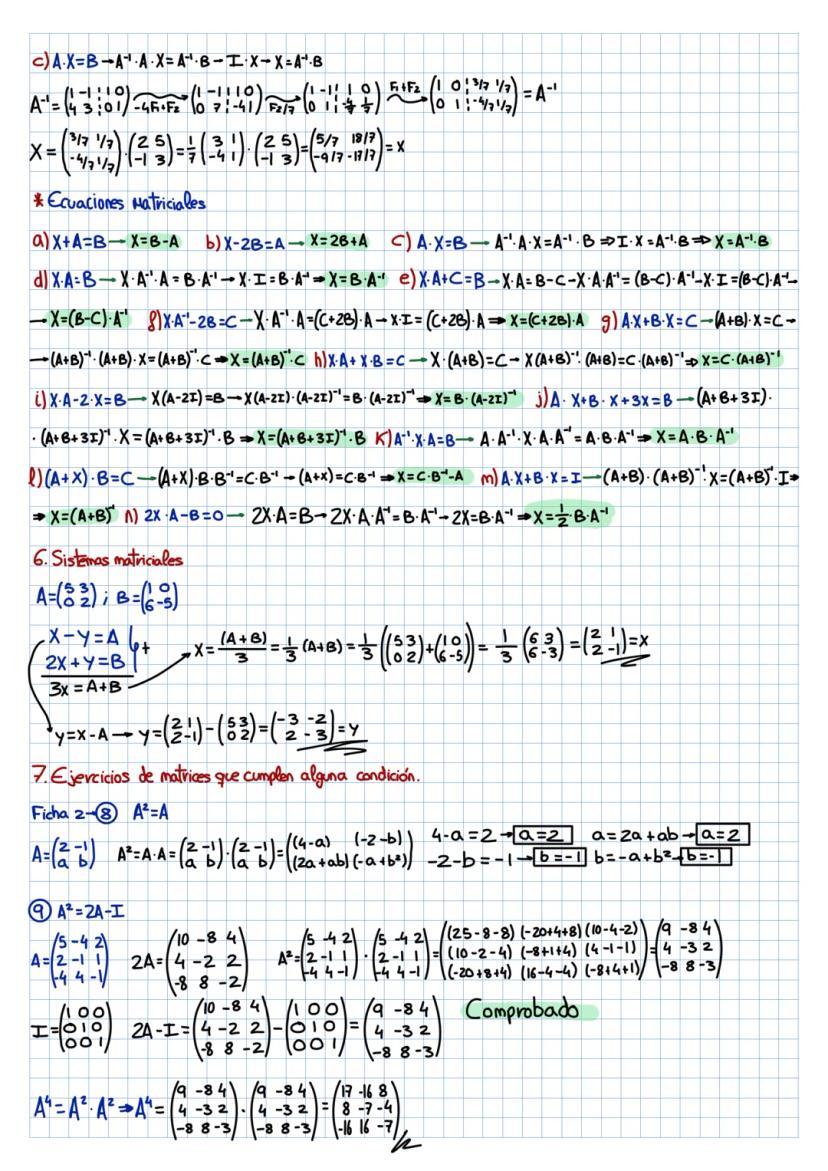 c) A·X=B → A⁻¹·A·X=A⁻¹·B → I·X → X=A⁻¹·B
A⁻¹=(1 -1 ¦ 1 0 / 4 3 ¦ 0 1) →(-4F₁+F₂) (1 -1 ¦ 1 0 / 0 7 ¦ -4 1) →(F₂/7) (1 -1 ¦ 1 0 / 0 1 ¦ -4/7 1/7) →(F₁+F₂) (1 0 ¦ 3/7 1/7 / 0 1 ¦ -4/7 1/7) = A⁻¹
X=(3/7 1/7 / -4/7 1/7)·(2 5 / -1 3)=1/7(3 1 / -4 1)·(2 5 / -1 3)=(5/7 18/7 / -9/7 -17/7)=X
* Ecuaciones Matriciales
a) X+A=B → X=B-A b) X-2B=A → X=2B+A c) A·X=B → A⁻¹·A·X=A⁻¹·B ⇒ I·X=A⁻¹·B ⇒ X=A⁻¹·B
d) X·A=B → X·A⁻¹·A=B·A⁻¹ → X·I=B·A⁻¹ ⇒ X=B·A⁻¹ e) X·A+C=B → X·A=B-C → X·A·A⁻¹=(B-C)·A⁻¹ → X·I=(B-C)·A⁻¹ →
→ X=(B-C)·A⁻¹ f) X·A⁻¹-2B=C → X·A⁻¹·A=(C+2B)·A → X·I=(C+2B)·A ⇒ X=(C+2B)·A g) A·X+B·X=C → (A+B)·X=C →
→ (A+B)⁻¹·(A+B)·X=(A+B)⁻¹·C ⇒ X=(A+B)⁻¹·C h) X·A+X·B=C → X·(A+B)=C → X(A+B)⁻¹·(A+B)=C·(A+B)⁻¹ ⇒ X=C·(A+B)⁻¹
i) X·A-2·X=B → X(A-2I)=B → X(A-2I)·(A-2I)⁻¹=B·(A-2I)⁻¹ ⇒ X=B·(A-2I)⁻¹ j) A·X+B·X+3X=B → (A+B+3I)·
·(A+B+3I)⁻¹·X=(A+B+3I)⁻¹·B ⇒ X=(A+B+3I)⁻¹·B K) A⁻¹·X·A=B → A·A⁻¹·X·A·A⁻¹=A·B·A⁻¹ ⇒ X=A·B·A⁻¹
l) (A+X)·B=C → (A+X)·B·B⁻¹=C·B⁻¹ → (A+X)=C·B⁻¹ ⇒ X=C·B⁻¹-A m) A·X+B·X=I → (A+B)·(A+B)⁻¹·X=(A+B)⁻¹·I ⇒
⇒ X=(A+B)⁻¹ n) 2X·A-B=0 → 2X·A=B → 2X·A·A⁻¹=B·A⁻¹ → 2X=B·A⁻¹ ⇒ X=1/2·B·A⁻¹
6. Sistemas matriciales
A=(5 3 / 0 2); B=(1 0 / 6 -5)
X-Y=A
2X+Y=B
+
3X=A+B
X=(A+B)/3=1/3(A+B)=1/3((5 3 / 0 2)+(1 0 / 6 -5))=1/3(6 3 / 6 -3)=(2 1 / 2 -1)=X
Y=X-A → Y=(2 1 / 2 -1)-(5 3 / 0 2)=(-3 -2 / 2 -3)=Y
7. Ejercicios de matrices que cumplen alguna condición.
Ficha 2→⑧ A²=A
A=(2 -1 / a b) A²=A·A=(2 -1 / a b)·(2 -1 / a b)=((4-a) (-2-b) / (2a+ab) (-a+b²)) 4-a=2 → a=2 a=2a+ab → a=2
-2-b=-1 → b=-1 b=-a+b² → b=-1
⑨ A²=2A-I
A=(5 -4 2 / 2 -1 1 / -4 4 -1) 2A=(10 -8 4 / 4 -2 2 / -8 8 -2) A²=(5 -4 2 / 2 -1 1 / -4 4 -1)·(5 -4 2 / 2 -1 1 / -4 4 -1)=((25-8-8) (-20+4+8) (10-4-2) / (10-2-4) (-8+1+4) (4-1-1) / (-20+8+4) (16-4-4) (-8+4+1))=(9 -8 4 / 4 -3 2 / -8 8 -3)
I=(1 0 0 / 0 1 0 / 0 0 1) 2A-I=(10 -8 4 / 4 -2 2 / -8 8 -2)-(1 0 0 / 0 1 0 / 0 0 1)=(9 -8 4 / 4 -3 2 / -8 8 -3) Comprobado
A⁴=A²·A² ⇒ A⁴=(9 -8 4 / 4 -3 2 / -8 8 -3)·(9 -8 4 / 4 -3 2 / -8 8 -3)=(17 -16 8 / 8 -7 -4 / -16 16 -7)